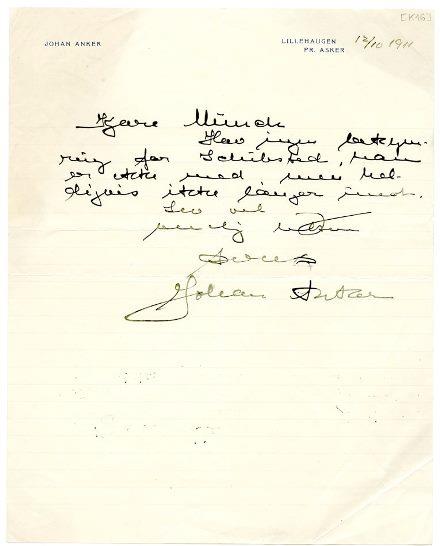 [K16]
JOHAN ANKER
LILLEHAUGEN
PR. ASKER
12/10 1911
Kjære Munch
Hav ingen bekym-
ring for Schibsted, han
er ikke med, men hel-
digvis ikke længer
Lev vel
venlig hilsen
Deres
Johan Anker